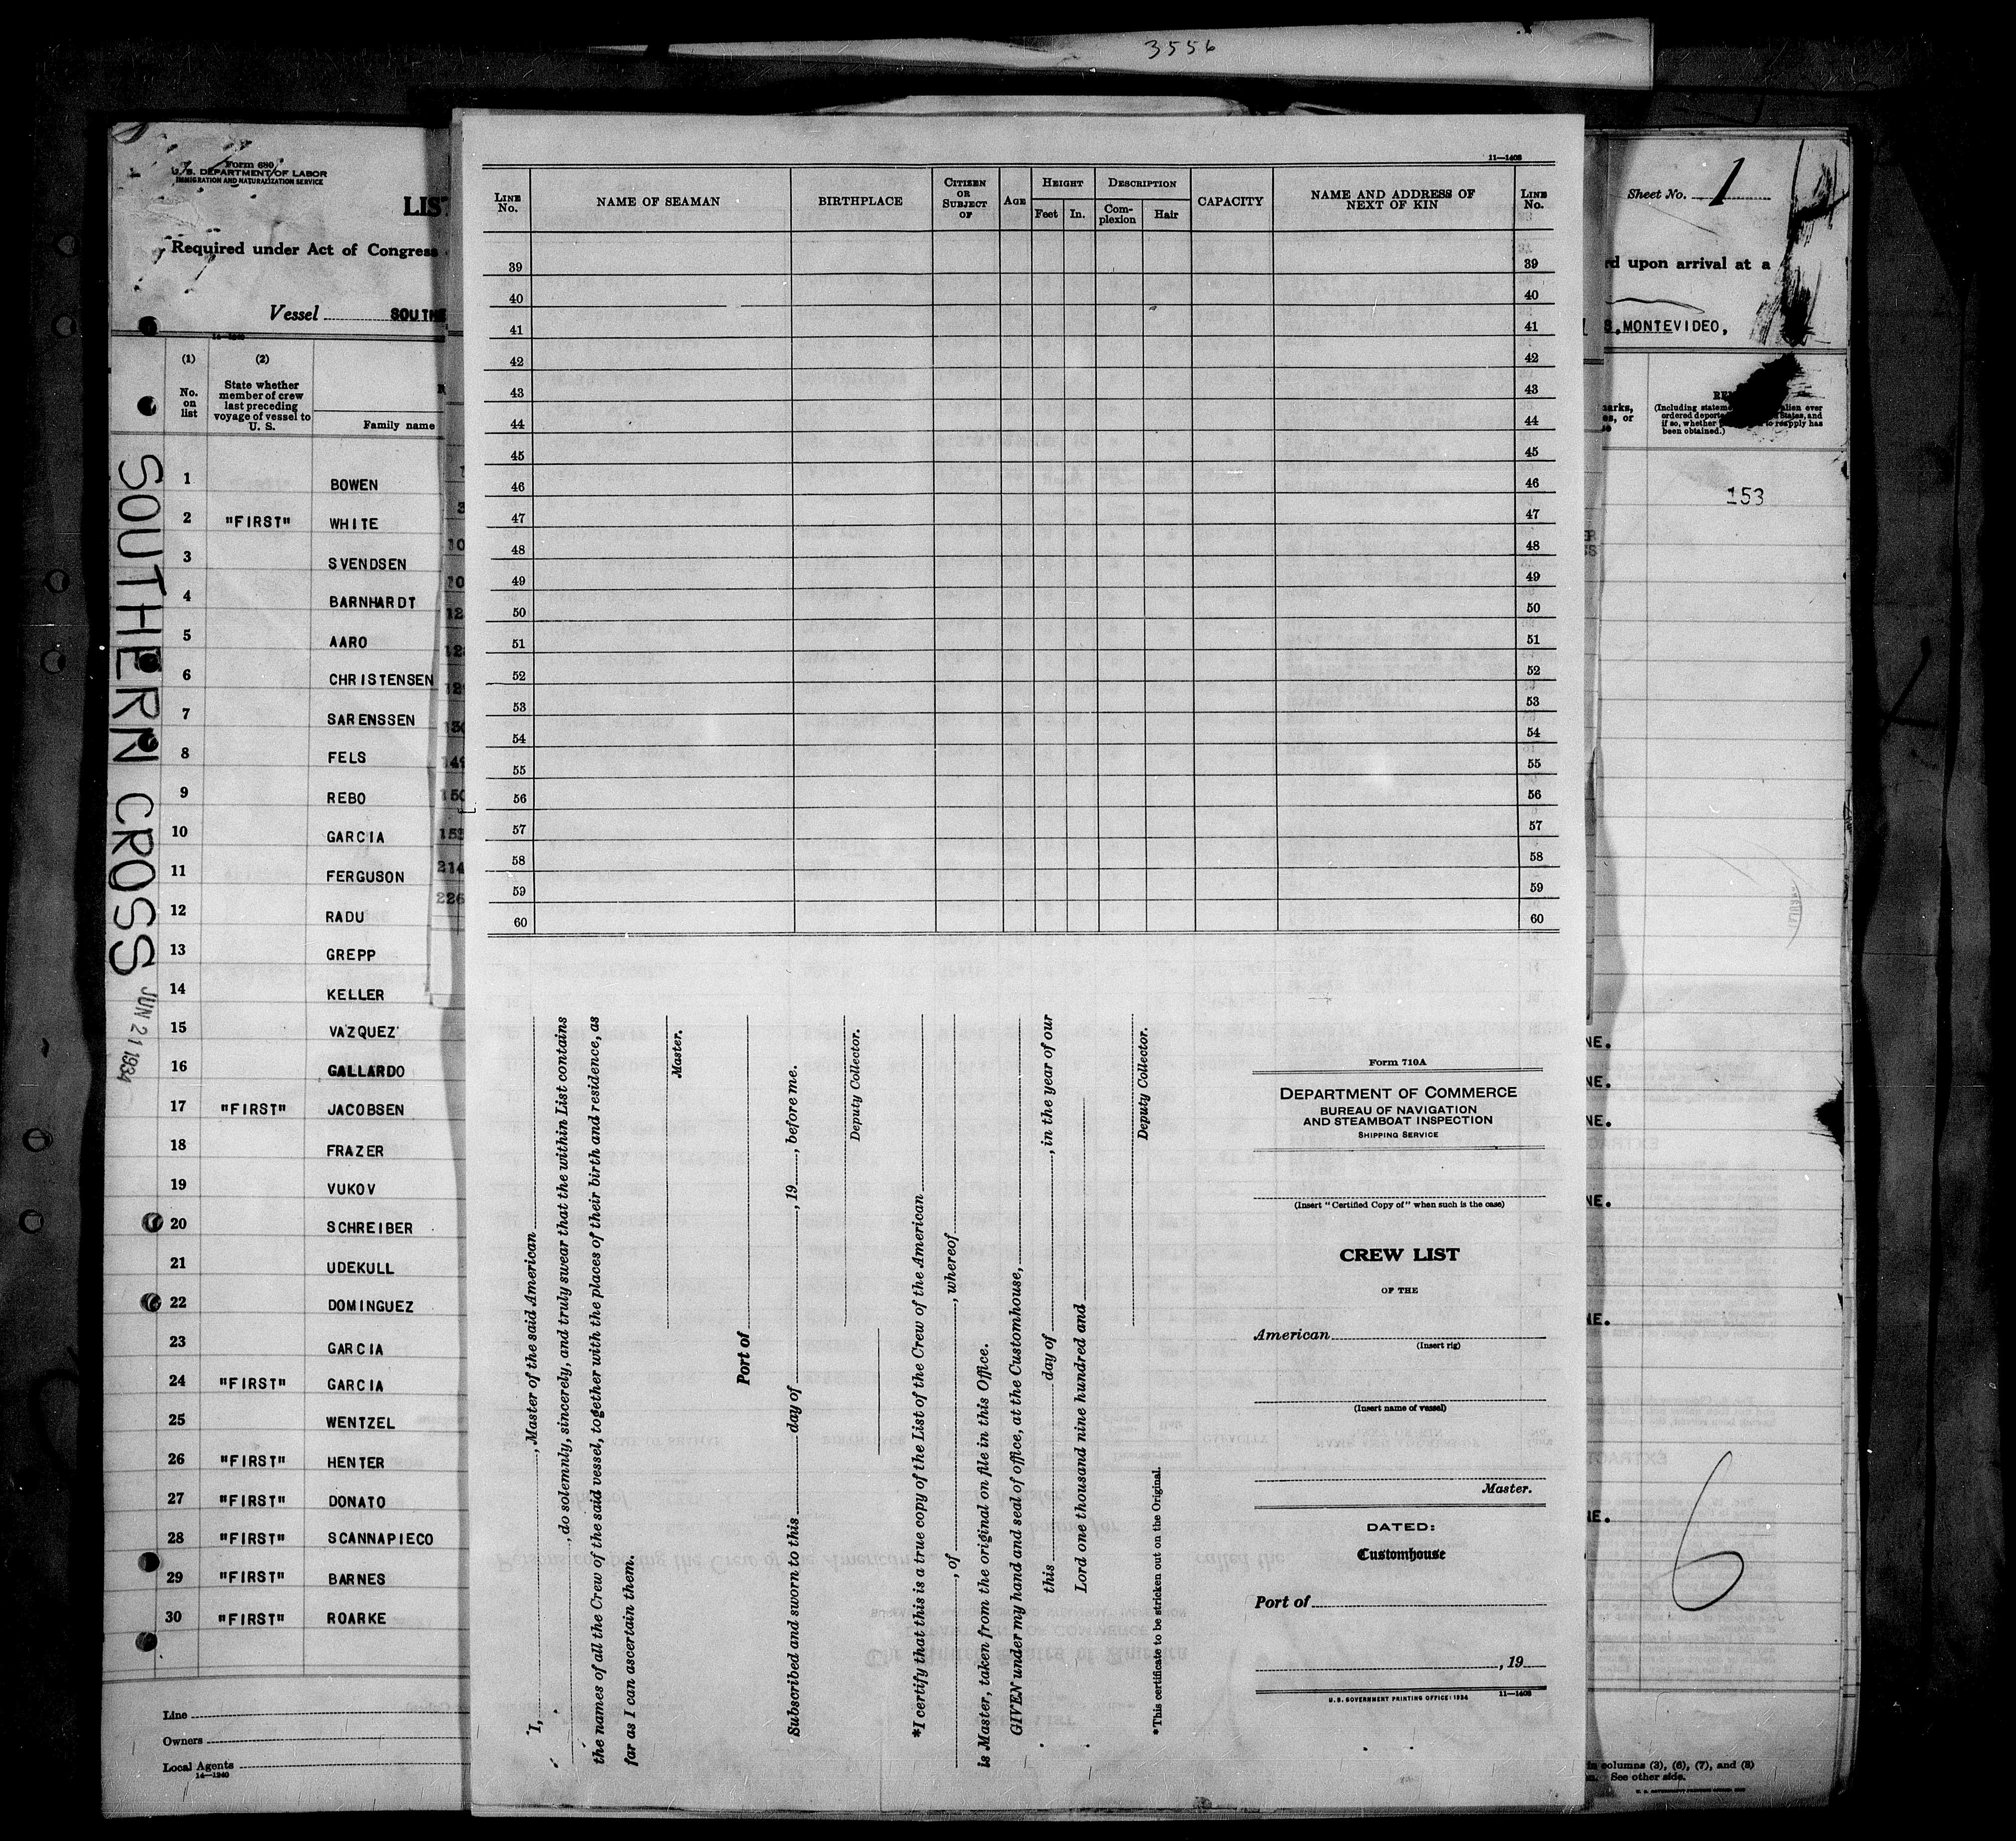 3556
Form 680
U.S. DEPARTMENT OF LABOR
IMMIGRATION AND NATURALIZATION SERVICE
LIST
Required under Act of Congress
Vessel SOUTHE
14—1240
(1) (2)
No. on list
State whether member of crew last preceding voyage of vessel to U. S.
Family name
SOUTHERN CROSS
JUN 21 1934
1 BOWEN
2 "FIRST" WHITE
3 SVENDSEN
4 BARNHARDT
5 AARO
6 CHRISTENSEN
7 SARENSSEN
8 FELS
9 REBO
10 GARCIA
11 FERGUSON
12 RADU
13 GREPP
14 KELLER
15 VAZQUEZ
16 GALLARDO
17 "FIRST" JACOBSEN
18 FRAZER
19 VUKOV
20 SCHREIBER
21 UDEKULL
22 DOMINGUEZ
23 GARCIA
24 "FIRST" GARCIA
25 WENTZEL
26 "FIRST" HENTER
27 "FIRST" DONATO
28 "FIRST" SCANNAPIECO
29 "FIRST" BARNES
30 "FIRST" ROARKE
Line
Owners
Local Agents
14—1240
150
153
214
226
11—1408
LINE No.
NAME OF SEAMAN
BIRTHPLACE
CITIZEN OR SUBJECT OF
AGE
HEIGHT
Feet In.
DESCRIPTION
Complexion Hair
CAPACITY
NAME AND ADDRESS OF NEXT OF KIN
LINE No.
39 39
40 40
41 41
42 42
43 43
44 44
45 45
46 46
47 47
48 48
49 49
50 50
51 51
52 52
53 53
54 54
55 55
56 56
57 57
58 58
59 59
60 60
I, , Master of the said American
, do solemnly, sincerely, and truly swear that the within List contains
the names of all the Crew of the said vessel, together with the places of their birth and residence, as
far as I can ascertain them.
Master.
Port of
Subscribed and sworn to this day of , 19 , before me.
Deputy Collector.
*I certify that this is a true copy of the List of the Crew of the American
, of , whereof
is Master, taken from the original on file in this Office.
GIVEN under my hand and seal of office, at the Customhouse,
this day of , in the year of our
Lord one thousand nine hundred and
Deputy Collector.
*This certificate to be stricken out on the Original.
Form 710A
DEPARTMENT OF COMMERCE
BUREAU OF NAVIGATION
AND STEAMBOAT INSPECTION
SHIPPING SERVICE
(Insert "Certified Copy of" when such is the case)
CREW LIST
OF THE
American
(Insert rig)
(Insert name of vessel)
Master.
DATED:
Customhouse
Port of
, 19
U.S. GOVERNMENT PRINTING OFFICE: 1934 11—1408
Sheet No. 1
rd upon arrival at a
S, MONTEVIDEO,
(Including statement alien ever
ordered deported States, and
if so, whether to reapply has
been obtained.)
153
NE.
NE.
NE.
NE.
NE.
NE.
6
in columns (3), (6), (7), and (8)
See other side.